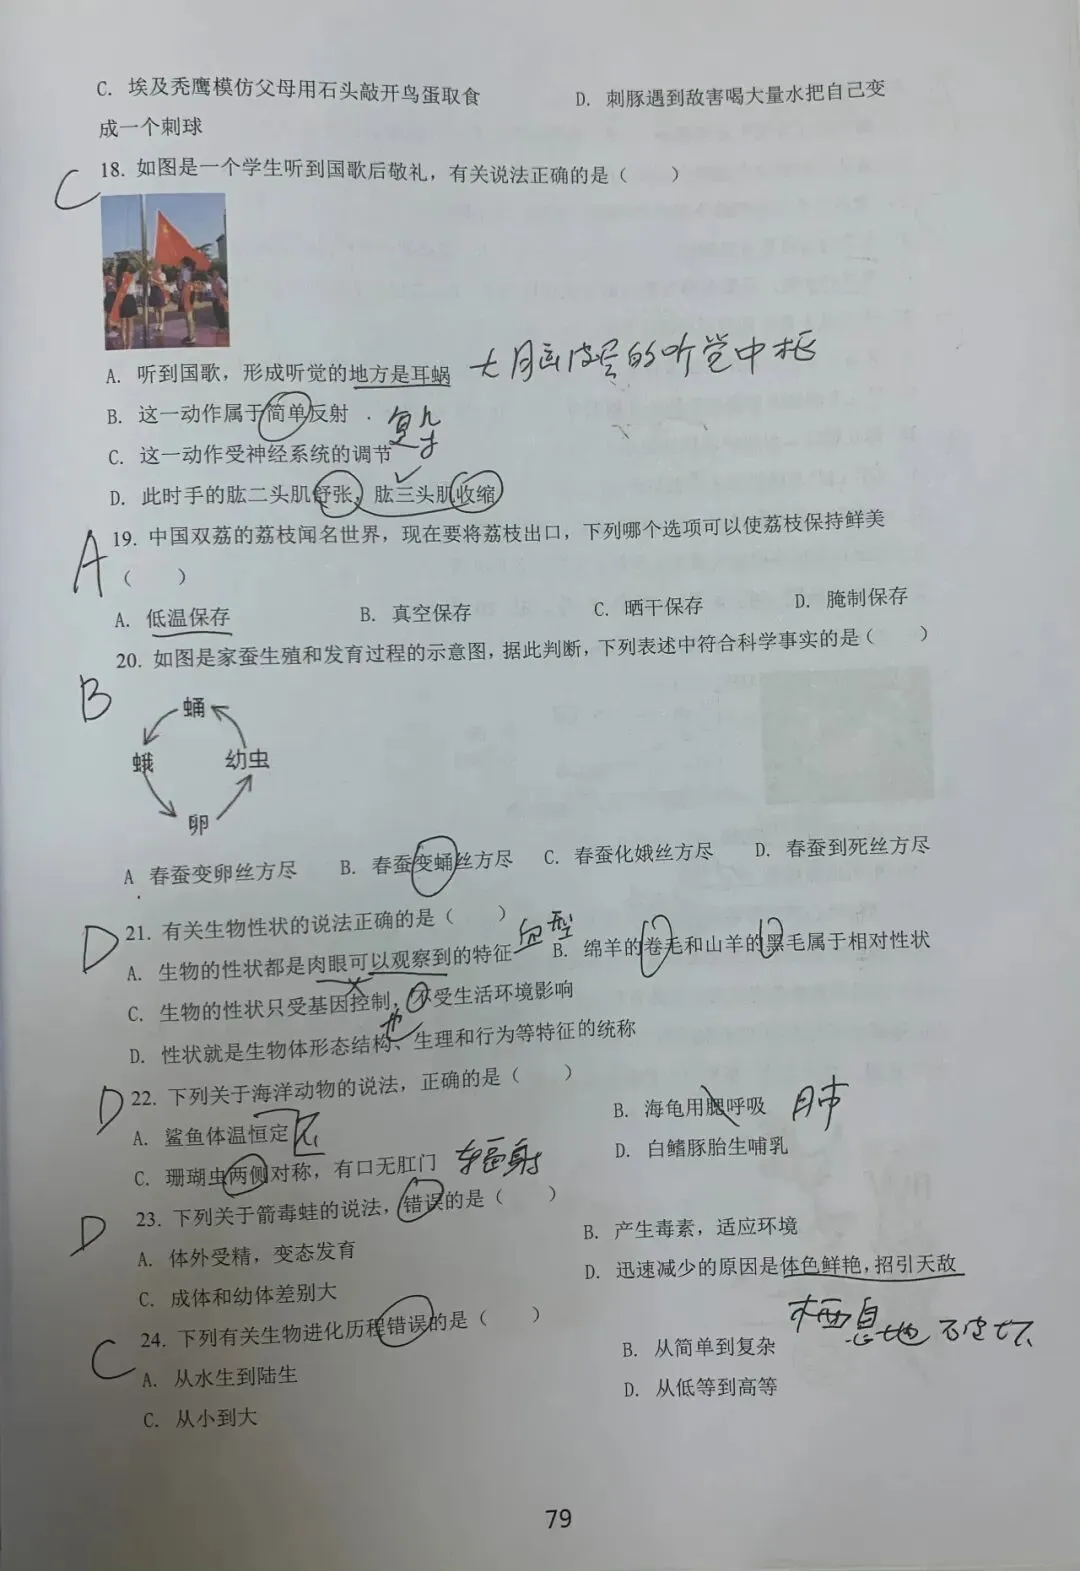 C. 埃及秃鹰模仿父母用石头敲开鸟蛋取食 D. 刺豚遇到敌害喝大量水把自己变
成一个刺球
C 18. 如图是一个学生听到国歌后敬礼，有关说法正确的是（ ）
A. 听到国歌，形成听觉的地方是耳蜗 大脑皮层的听觉中枢
B. 这一动作属于简单反射 复杂
C. 这一动作受神经系统的调节
D. 此时手的肱二头肌舒张，肱三头肌收缩
A 19. 中国双荔的荔枝闻名世界，现在要将荔枝出口，下列哪个选项可以使荔枝保持鲜美
（ ）
A. 低温保存 B. 真空保存 C. 晒干保存 D. 腌制保存
20. 如图是家蚕生殖和发育过程的示意图，据此判断，下列表述中符合科学事实的是（ ）
B
蛹
蛾 幼虫
卵
A 春蚕变卵丝方尽 B. 春蚕变蛹丝方尽 C. 春蚕化娥丝方尽 D. 春蚕到死丝方尽
D 21. 有关生物性状的说法正确的是（ ） 血型
A. 生物的性状都是肉眼可以观察到的特征 B. 绵羊的卷毛和山羊的黑毛属于相对性状
C. 生物的性状只受基因控制，不受生活环境影响
也
D. 性状就是生物体形态结构、生理和行为等特征的统称
D 22. 下列关于海洋动物的说法，正确的是（ ）
A. 鲨鱼体温恒定 B. 海龟用腮呼吸 肺
C. 珊瑚虫两侧对称，有口无肛门 辐射 D. 白鳍豚胎生哺乳
D 23. 下列关于箭毒蛙的说法，错误的是（ ）
A. 体外受精，变态发育 B. 产生毒素，适应环境
C. 成体和幼体差别大 D. 迅速减少的原因是体色鲜艳，招引天敌
栖息地
C 24. 下列有关生物进化历程错误的是（ ）
A. 从水生到陆生 B. 从简单到复杂
C. 从小到大 D. 从低等到高等
79